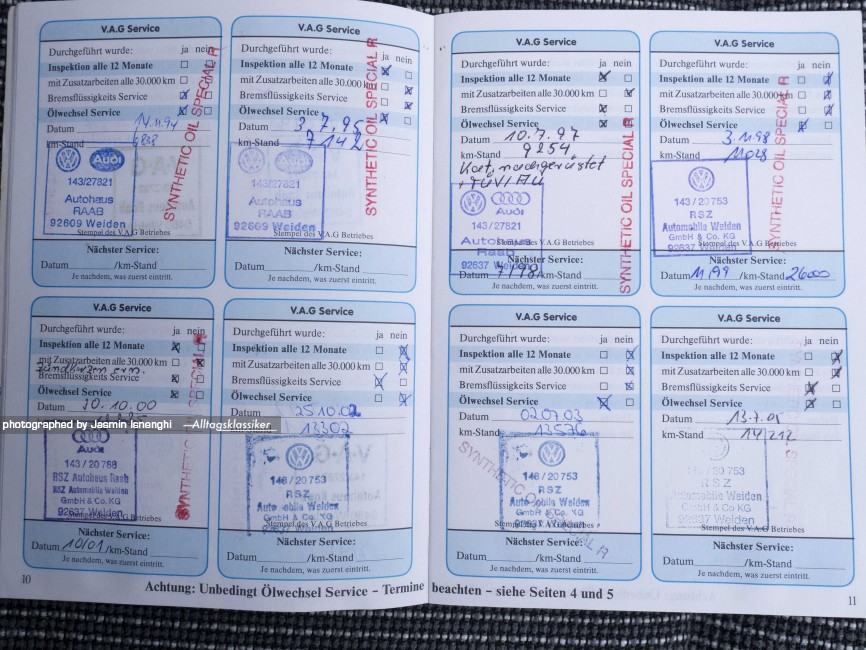 V.A.G Service
Durchgeführt wurde: ja nein
Inspektion alle 12 Monate
mit Zusatzarbeiten alle 30.000 km
Bremsflüssigkeits Service
Ölwechsel Service
Datum 14.11.94
km-Stand 6838
SYNTHETIC OIL SPECIAL R
Audi
143/27821
Autohaus
RAAB
92609 Weiden
Stempel des V.A.G Betriebes
Nächster Service:
Datum /km-Stand
Je nachdem, was zuerst eintritt.
V.A.G Service
Durchgeführt wurde: ja nein
Inspektion alle 12 Monate
mit Zusatzarbeiten alle 30.000 km
Bremsflüssigkeits Service
Ölwechsel Service
Datum 3.7.95
km-Stand 7142
SYNTHETIC OIL SPECIAL R
Audi
143/27821
Autohaus
RAAB
92609 Weiden
Stempel des V.A.G Betriebes
Nächster Service:
Datum /km-Stand
Je nachdem, was zuerst eintritt.
V.A.G Service
Durchgeführt wurde: ja nein
Inspektion alle 12 Monate
mit Zusatzarbeiten alle 30.000 km
Bremsflüssigkeits Service
Ölwechsel Service
Datum 10.7.97
km-Stand 9254
Kat. nachgerüstet
+ TÜV/AU
SYNTHETIC OIL SPECIAL R
Audi
143/27821
Autohaus
Raab
92637 Weiden
Stempel des V.A.G Betriebes
Nächster Service:
Datum 7/98 /km-Stand
Je nachdem, was zuerst eintritt.
V.A.G Service
Durchgeführt wurde: ja nein
Inspektion alle 12 Monate
mit Zusatzarbeiten alle 30.000 km
Bremsflüssigkeits Service
Ölwechsel Service
Datum 3.11.98
km-Stand 11028
SYNTHETIC OIL SPECIAL R
143/20753
RSZ
Automobile Weiden
GmbH & Co. KG
92637 Weiden
Stempel des V.A.G Betriebes
Nächster Service:
Datum 11/99 /km-Stand 26000
Je nachdem, was zuerst eintritt.
V.A.G Service
Durchgeführt wurde: ja nein
Inspektion alle 12 Monate
mit Zusatzarbeiten alle 30.000 km
Zündkerzen ern.
Bremsflüssigkeits Service
Ölwechsel Service
Datum 30.10.00
SYNTHETIC SPECIAL R
Audi
143/20788
RSZ Autohaus Raab
RSZ Automobile Weiden
GmbH & Co. KG
92637 Weiden
Stempel des V.A.G Betriebes
Nächster Service:
Datum 10/01 /km-Stand
Je nachdem, was zuerst eintritt.
V.A.G Service
Durchgeführt wurde: ja nein
Inspektion alle 12 Monate
mit Zusatzarbeiten alle 30.000 km
Bremsflüssigkeits Service
Ölwechsel Service
25.10.02
13302
RSZ
GmbH & Co. KG
92637 Weiden
Stempel des V.A.G Betriebes
Nächster Service:
Datum /km-Stand
Je nachdem, was zuerst eintritt.
V.A.G Service
Durchgeführt wurde: ja nein
Inspektion alle 12 Monate
mit Zusatzarbeiten alle 30.000 km
Bremsflüssigkeits Service
Ölwechsel Service
Datum 02.07.03
km-Stand 13576
SYNTHETIC OIL SPECIAL R
RSZ
Automobile Weiden
GmbH & Co. KG
92637 Weiden
Stempel des V.A.G Betriebes
Nächster Service:
Datum /km-Stand
Je nachdem, was zuerst eintritt.
V.A.G Service
Durchgeführt wurde: ja nein
Inspektion alle 12 Monate
mit Zusatzarbeiten alle 30.000 km
Bremsflüssigkeits Service
Ölwechsel Service
Datum
km-Stand 14212
RSZ
Automobile Weiden
GmbH & Co. KG
92637 Weiden
Stempel des V.A.G Betriebes
Nächster Service:
Datum /km-Stand
Je nachdem, was zuerst eintritt.
10
Achtung: Unbedingt Ölwechsel Service – Termine beachten – siehe Seiten 4 und 5
11
photographed by Jasmin Isnenghi —Alltagsklassiker